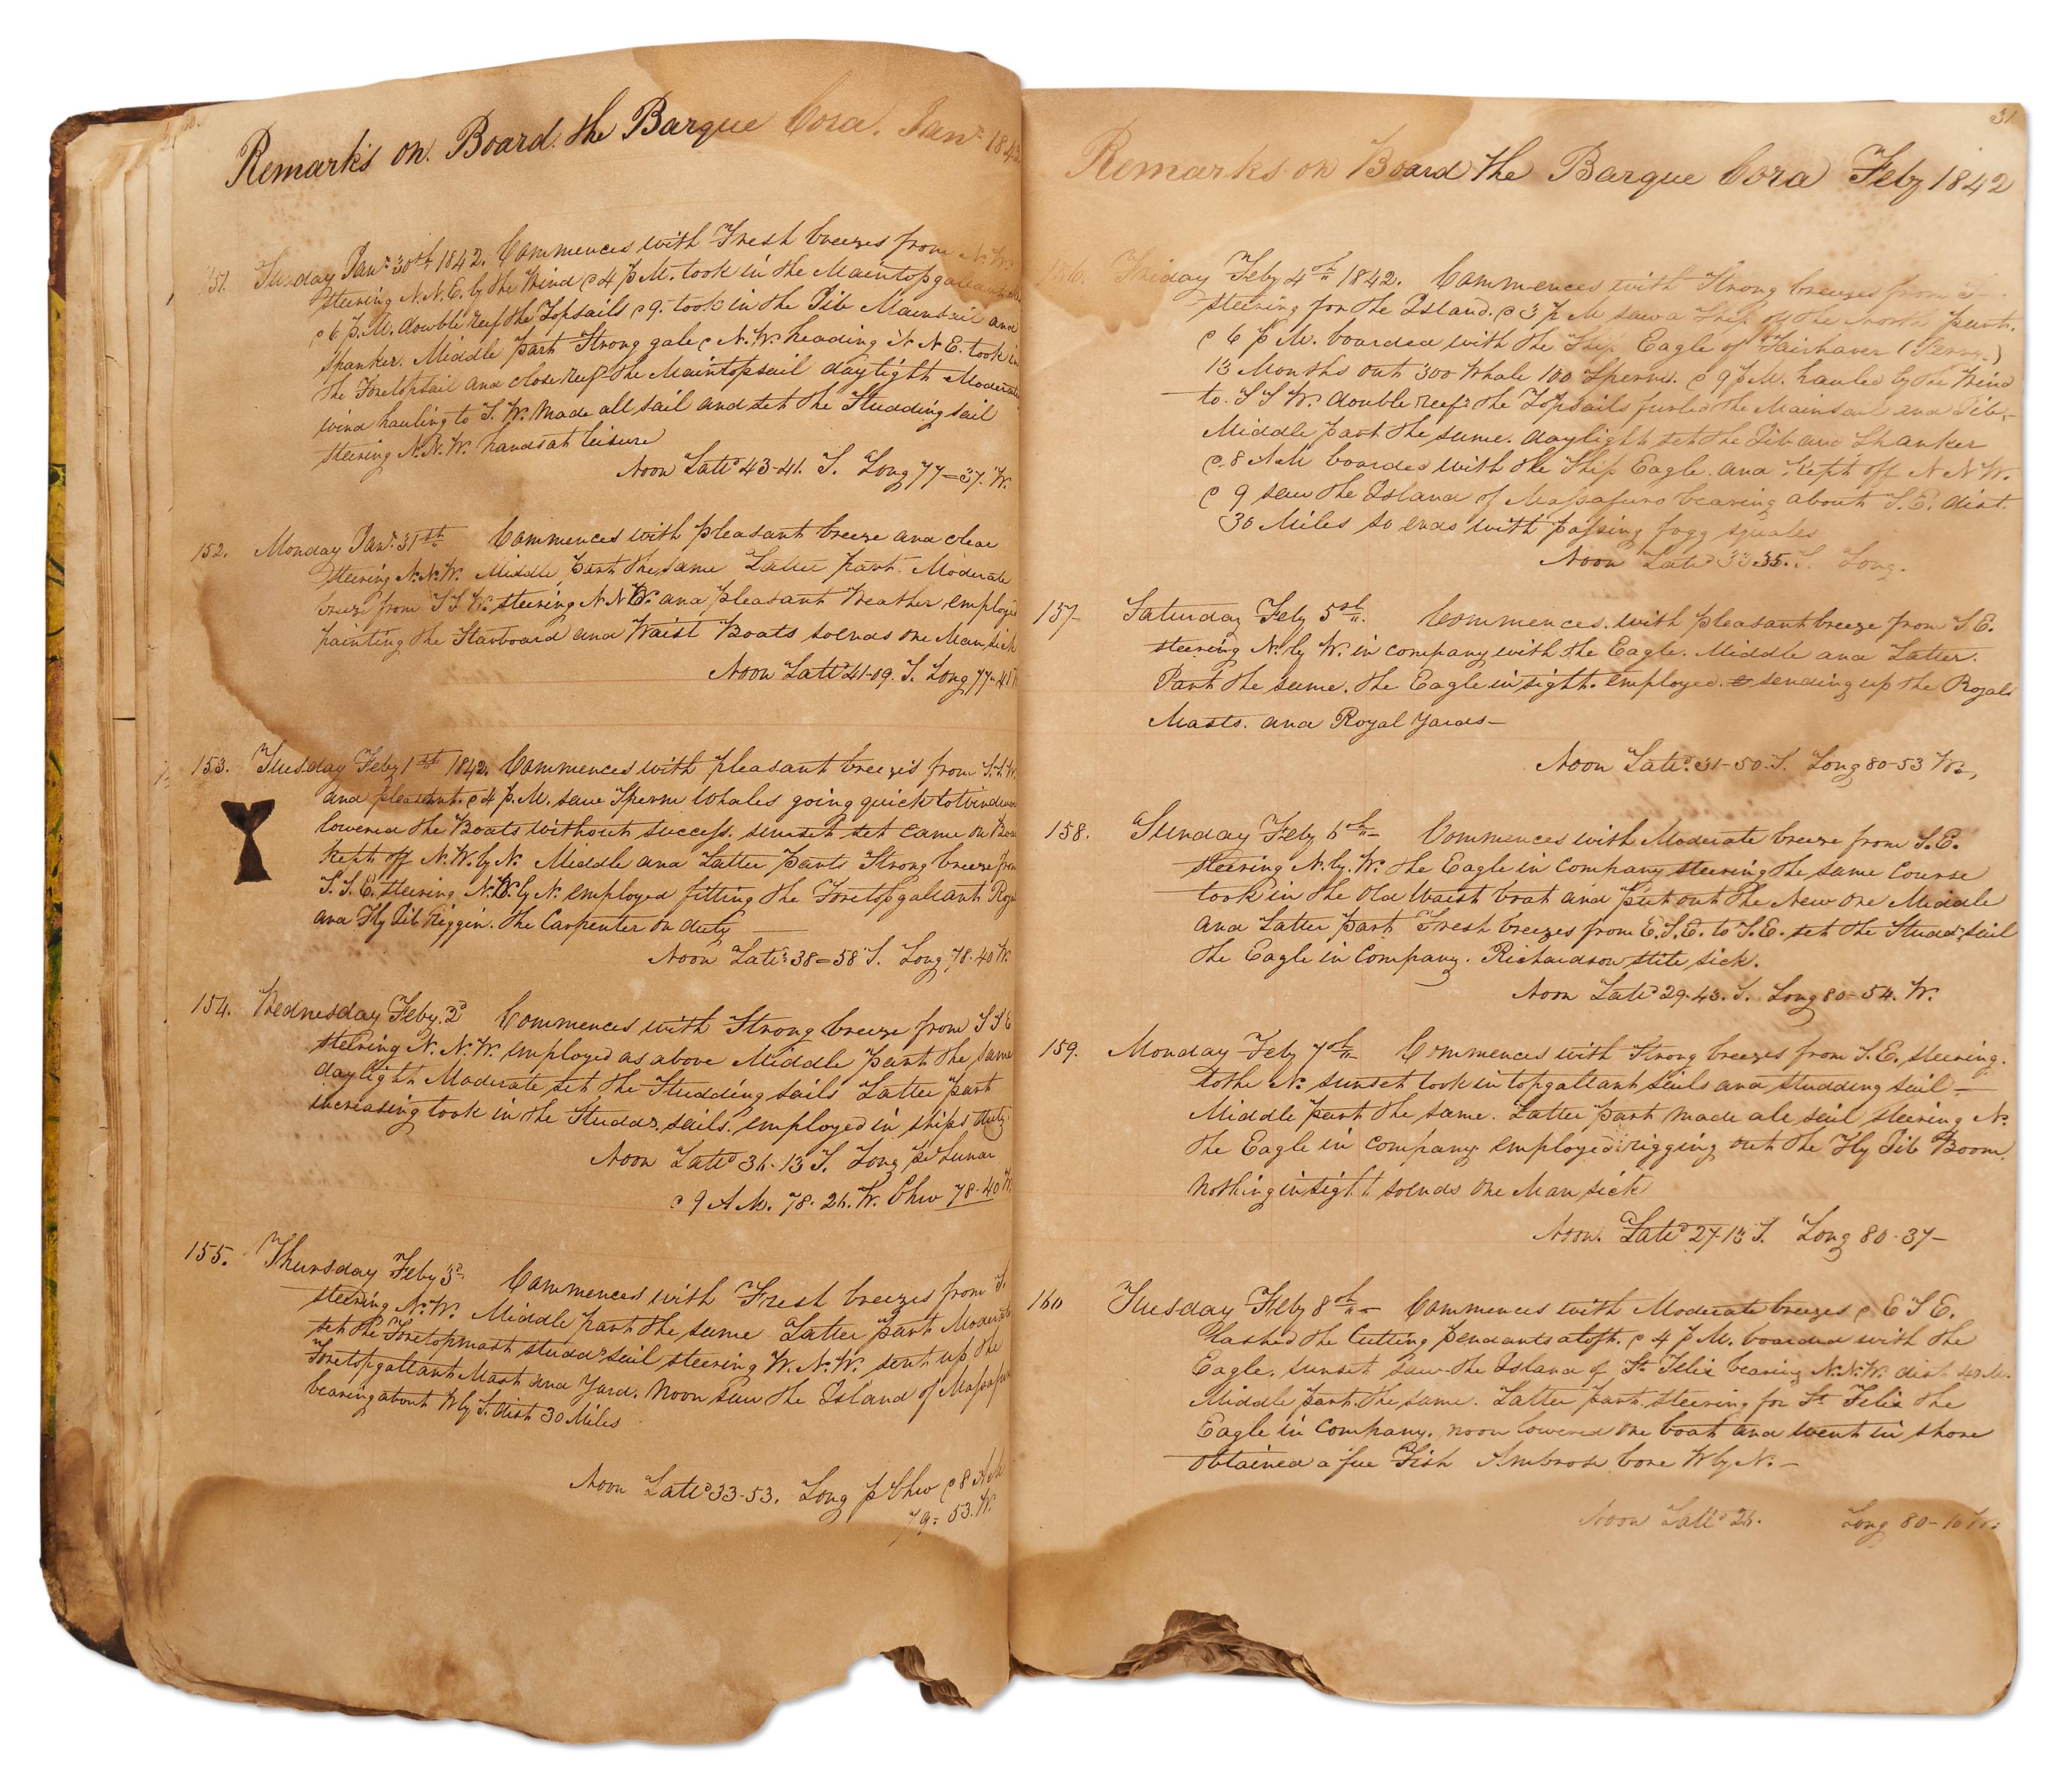 Remarks on Board the Barque Cora. Jany 1842
151. Sunday Jany 30th 1842. Commences with Fresh breezes from N.W.
steering N.N.E. by the Wind @ 4 P.M. took in the Maintopgallant
@ 6 P.M. double reef the Topsails @ 9 took in the Jib Mainsail and
Spanker. Middle part Strong gale @ N.W. heading N N E. took in
the Foretopsail and close reef the Maintopsail daylight Moderate
wind hauling to S.W. Made all sail and set the Studding sail
steering N.N.W. hands at leisure
Noon Latd 43-41. S. Long 77=37. W.
152. Monday Jany 31st Commences with pleasant breeze and clear
steering N.N.W. Middle Part the same Latter part Moderate
breeze from S S W. steering N N W. and pleasant Weather employed
painting the Starboard and Waist Boats so ends one Man sick
Noon Latd 41-09. S. Long 77-
153. Tuesday Feby 1st 1842. Commences with pleasant breezes from S.S.W.
and pleasant. @ 4 P.M. saw Sperm Whales going quick to Windward
lowered the Boats without success. sunset set came on Board
Kept off N.W. by N. Middle and Latter parts Strong breeze from
S.S.E. steering N.W. by N. employed fitting the Foretopgallant Royal
and Fly Jib Riggin. the Carpenter on duty
Noon Latd 38=58 S. Long 78-40 W.
154. Wednesday Feby 2d Commences with Strong breeze from S S E
steering N.N.W. employed as above Middle part the same
daylight Moderate set the Studding sails Latter part
increasing took in the Studdg sails. employed in ships duty
Noon Latd 36-13 S. Long pr Lunar
@ 9 A M. 78-26. W. Chro 78-40 W.
155. Thursday Feby 3d Commences with Fresh breezes from S.
steering N.W. Middle part the same Latter part Moderate
set the Foretopmast studdg sail steering W.N.W. sent up the
Foretopgallant Mast and Yard. Noon saw the Island of Massafuro
bearing about W by S. dist 30 Miles
Noon Latd 33-53. Long p Chro @ 8 A M
79=53. W.
31
Remarks on Board the Barque Cora Feby 1842
156. Friday Feby 4th 1842. Commences with Strong breezes from S
steering for the Island. @ 3 P M saw a Ship off the North part.
@ 6 P M. boarded with the Ship Eagle of Fairhaven (Perry)
13 Months out 300 Whale 100 Sperm. @ 9 P.M. hauled by the Wind
to S S W. double reef the Topsails furled the Mainsail and Jib,-
Middle part the same. daylight set the Jib and Spanker
@ 8 A M boarded with the Ship Eagle. and kept off N N W.
@ 9 saw the Island of Massafuro bearing about S.E. dist.
30 Miles so ends with passing fogg squales
Noon Latd 33 35. S. Long.
157- Saturday Feby 5th. Commences with pleasant breeze from S E.
steering N. by W. in company with the Eagle. Middle and Latter.
Part the same. the Eagle in sight. employed. sending up the Royals
Masts. and Royal Yards-
Noon Latd. 31-50. S. Long 80-53 W.,
158. Sunday Feby 6th Commences with Moderate breeze from S.E.
steering N. by. W. the Eagle in Company steering the same Course
took in the Old Waist boat and put out the New One Middle
and Latter part Fresh breezes from E.S.E. to S.E. set the Studdg sail
the Eagle in Company. Richardson stile sick.
Noon Latd 29-43. S. Long 80-54. W.
159. Monday Feby 7th Commences with Strong breezes from S.E. steering.
to the N. sunset took in topgallant sails and studding sail-
Middle part the same. Latter part Made all sail steering N.
the Eagle in Company employed rigging out the Fly Jib Boom.
Nothing in sight so ends One Man sick
Noon. Latd 27-13 S. Long 80-37-
160 Tuesday Feby 8th Commences with Moderate breezes @ E S E.
Lashed the Cutting pendants aloft. @ 4 P M. boarded with the
Eagle. sunset saw the Island of St Felix bearing N.N.W. dist 40 M.
Middle part the same. Latter part steering for St Felix the
Eagle in Company. noon lowered One boat and went in shore
obtained a few Fish Ambrose bore W by N.-
Noon Latd 26. Long 80-10 W.